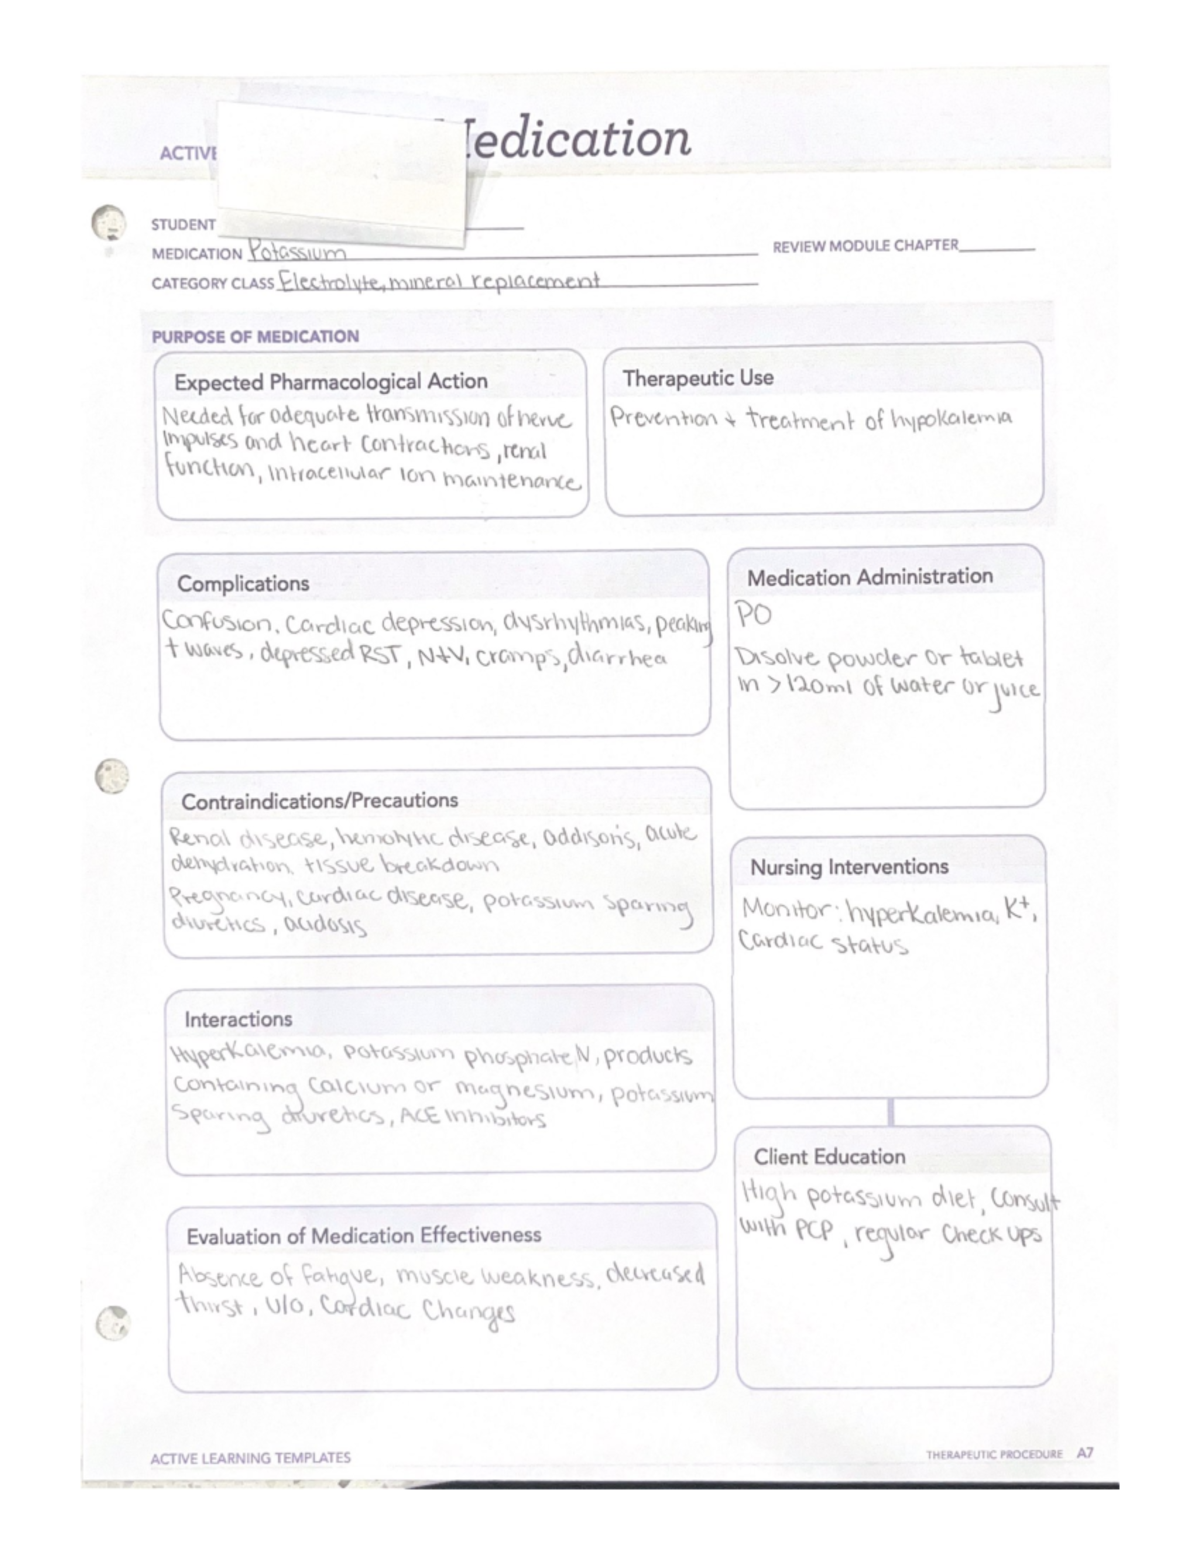 ACTIVE
Medication
STUDENT
MEDICATION Potassium
REVIEW MODULE CHAPTER
CATEGORY CLASS Electrolyte, mineral replacement
PURPOSE OF MEDICATION
Expected Pharmacological Action
Needed for adequate transmission of nerve
impulses and heart contractions, renal
function, intracellular ion maintenance
Therapeutic Use
Prevention + treatment of hypokalemia
Complications
Confusion, cardiac depression, dysrhythmias, peaking
t waves, depressed RST, N+V, cramps, diarrhea
Medication Administration
PO
Disolve powder or tablet
in >120ml of water or juice
Contraindications/Precautions
Renal disease, hemolytic disease, addison's, acute
dehydration, tissue breakdown
Pregnancy, cardiac disease, potassium sparing
diuretics, acidosis
Nursing Interventions
Monitor: hyperkalemia, K+,
Cardiac status
Interactions
Hyperkalemia, potassium phosphate IV, products
containing calcium or magnesium, potassium
sparing diuretics, ACE inhibitors
Client Education
High potassium diet, consult
with PCP, regular check ups
Evaluation of Medication Effectiveness
Absence of fatigue, muscle weakness, decreased
thirst, U/O, cardiac changes
ACTIVE LEARNING TEMPLATES
THERAPEUTIC PROCEDURE A7